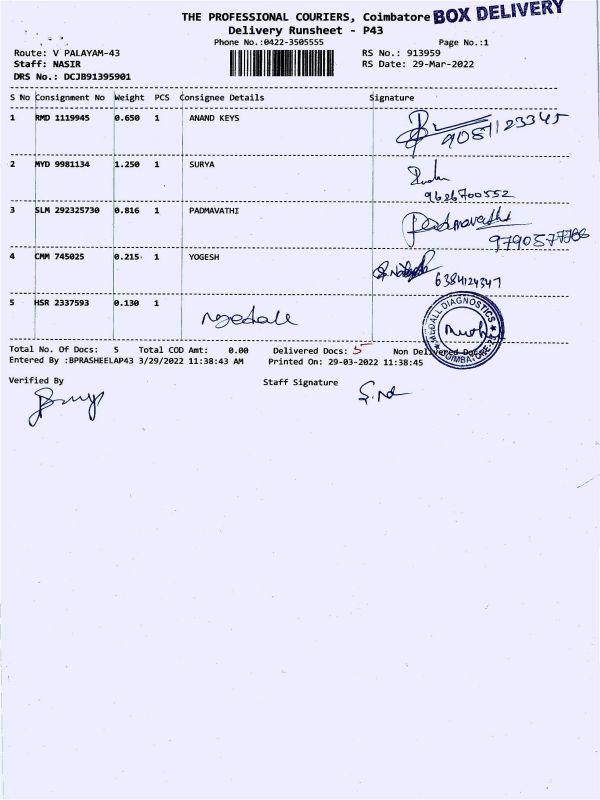 THE PROFESSIONAL COURIERS, Coimbatore BOX DELIVERY
Delivery Runsheet - P43
Phone No.:0422-3505555 Page No.:1
Route: V PALAYAM-43 RS No.: 913959
Staff: NASIR RS Date: 29-Mar-2022
DRS No.: DCJB91395901
S No Consignment No Weight PCS Consignee Details Signature
1 RMD 1119945 0.650 1 ANAND KEYS 9081123345
2 MYD 9981134 1.250 1 SURYA
9626700552
3 SLM 292325730 0.816 1 PADMAVATHI Padmavathi
4 CMM 745025 0.215 1 YOGESH
6384124347
5 HSR 2337593 0.130 1
MEDALL DIAGNOSTICS COIMBATORE
Total No. Of Docs: 5 Total COD Amt: 0.00 Delivered Docs: 5 Non Delivered Docs
Entered By :BPRASHEELAP43 3/29/2022 11:38:43 AM Printed On: 29-03-2022 11:38:45
Verified By Staff Signature